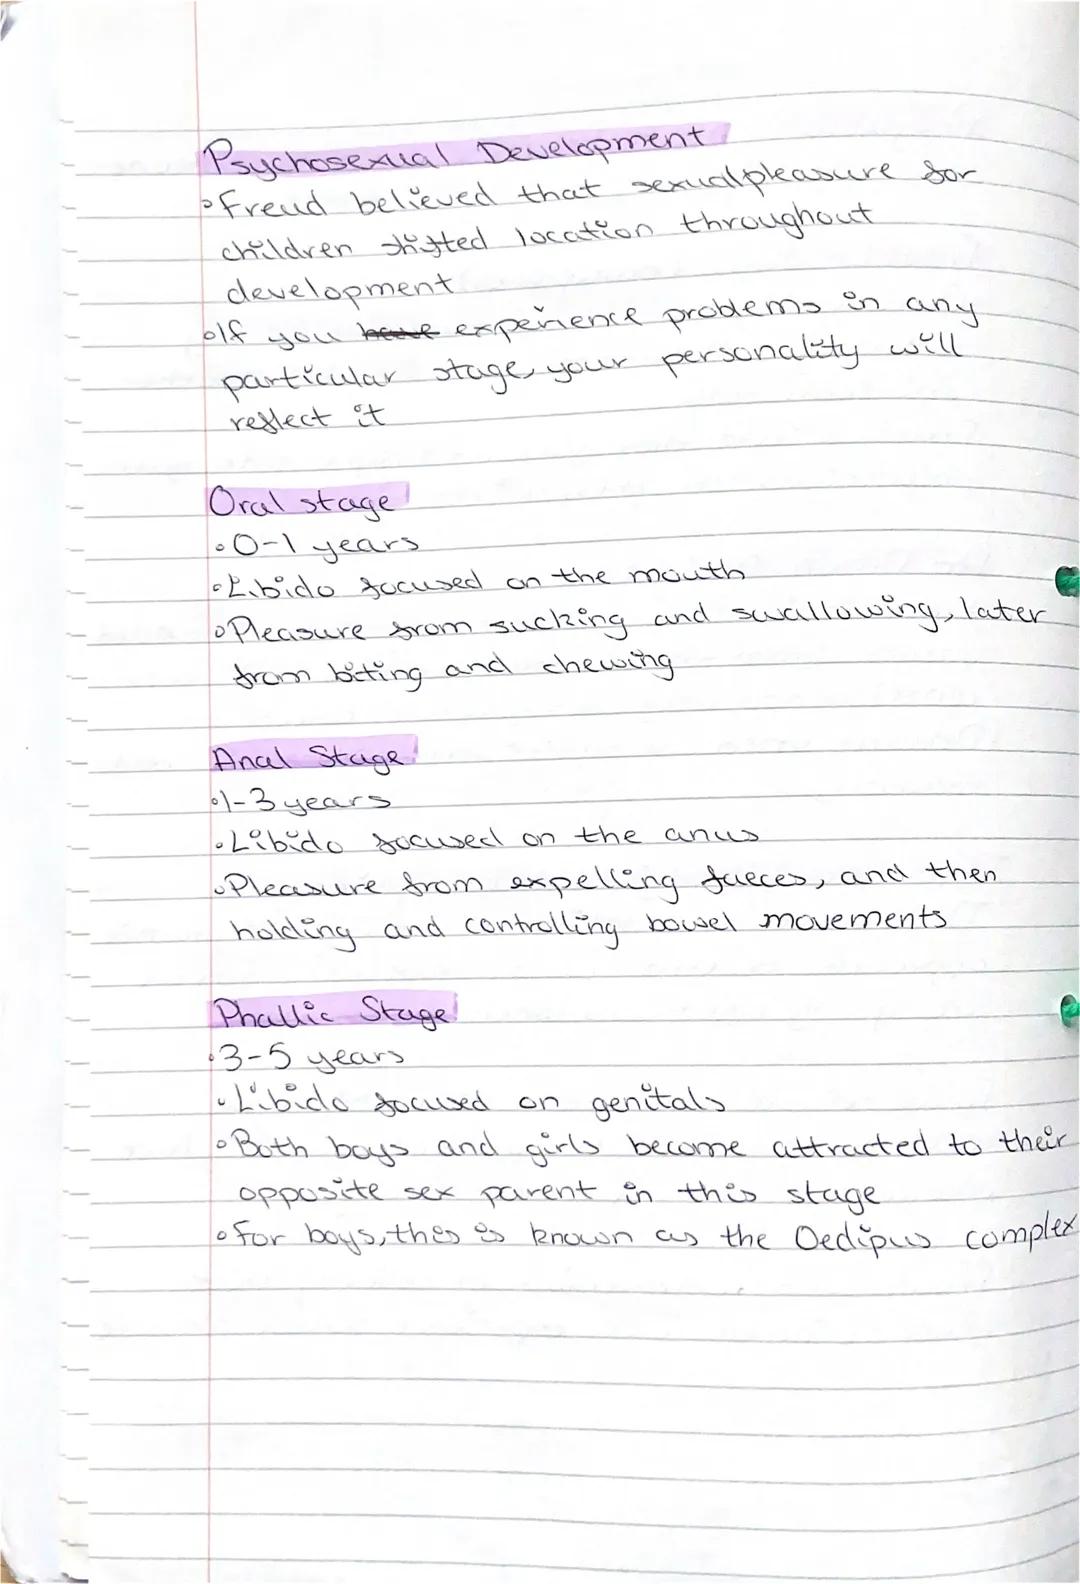 Psychosexual Development
•Freud believed that sexual pleasure for
children shifted location throughout
development
•If you have experience problems in any
particular stage, your personality will
reflect it
Oral stage
•0-1 years
•Libido focused on the mouth
•Pleasure from sucking and swallowing, later
from biting and chewing
Anal Stage
•1-3 years
•Libido focused on the anus
•Pleasure from expelling faeces, and then
holding and controlling bowel movements
Phallic Stage
•3-5 years
•Libido focused on genitals
•Both boys and girls become attracted to their
opposite sex parent in this stage
•For boys, this is known as the Oedipus complex